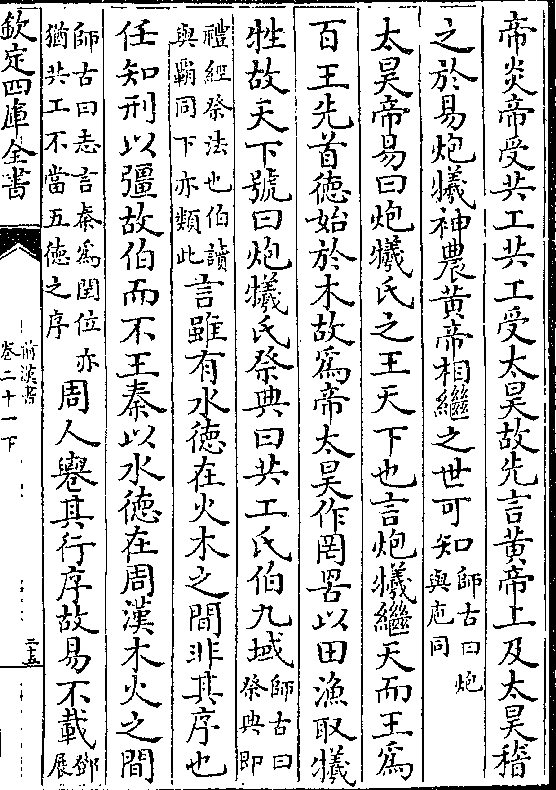 帝炎帝受共工共工受太昊故先言黄帝上及太昊稽
之於易炮犧神農黄帝相繼之世可知師古曰炮與庖同
太昊帝易曰炮犧氏之王天下也言炮犧繼天而王為
百王先首徳始於木故為帝太昊作罔罟以田漁取犧
牲故天下號曰炮犧氏祭典曰共工氏伯九域師古曰祭典即
禮經祭法也伯讀與霸同下亦類此言雖有水徳在火木之間非其序也
任知刑以彊故伯而不王秦以水徳在周漢木火之間
師古曰志言秦為閏位亦猶共工不當五徳之序周人𠅤其行序故易不載鄧展
欽定四庫全書
前漢書
卷二十一下
二十五